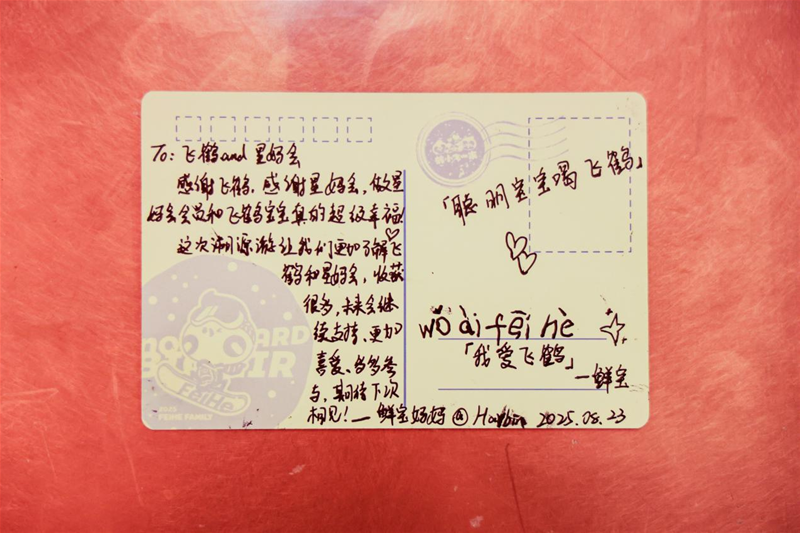 To: 飞鹤and 星妈会
感谢飞鹤，感谢星妈会，做星
妈会会员和飞鹤宝宝真的超级幸福！
这次溯源游让我们更加了解飞
鹤和星妈会，收获
很多，未来会继
续支持、更加
喜爱、多多参
与，期待下次
相见！— 鲜宝妈妈 @ Harbin 2025.08.23
FEIHE FAMILY
「聪明宝宝喝飞鹤」
wǒ ài fēi hè
「我爱飞鹤」
—鲜宝